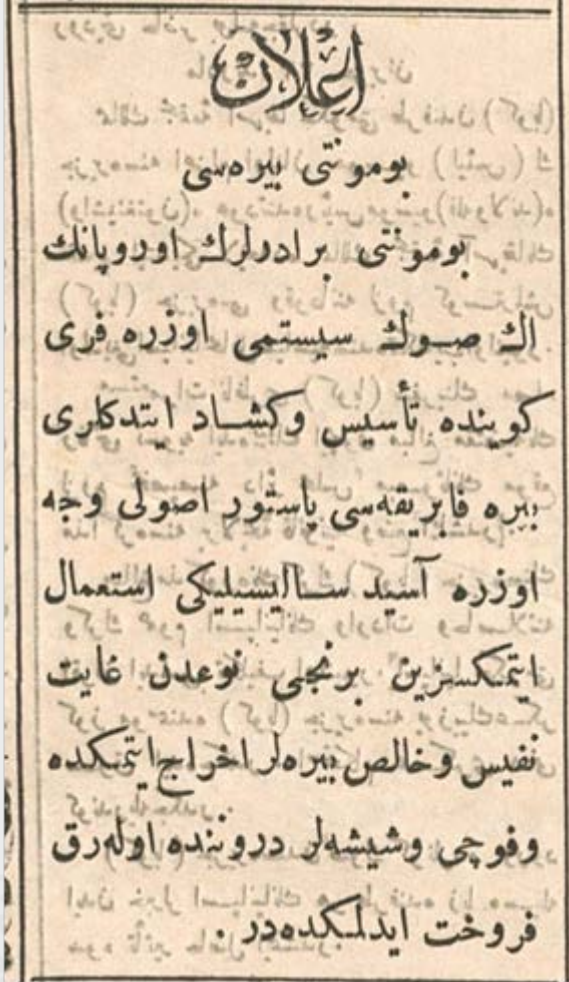 اعلان
بومونتی بیره‌سی
بومونتی برادرلرك اوروپانك
اك صوك سیستمی اوزره فری
كوینده تأسیس وكشاد ایتدكلری
بیره فابریقه‌سی پاستور اصولی وجه
اوزره آسید سالیسیلیكی استعمال
ایتمكسزین برنجی نوعدن غایت
نفیس وخالص بیره‌لر اخراج ایتمكده
وفوچی وشیشه‌لر دروننده اوله‌رق
فروخت ایدلمكده‌در .